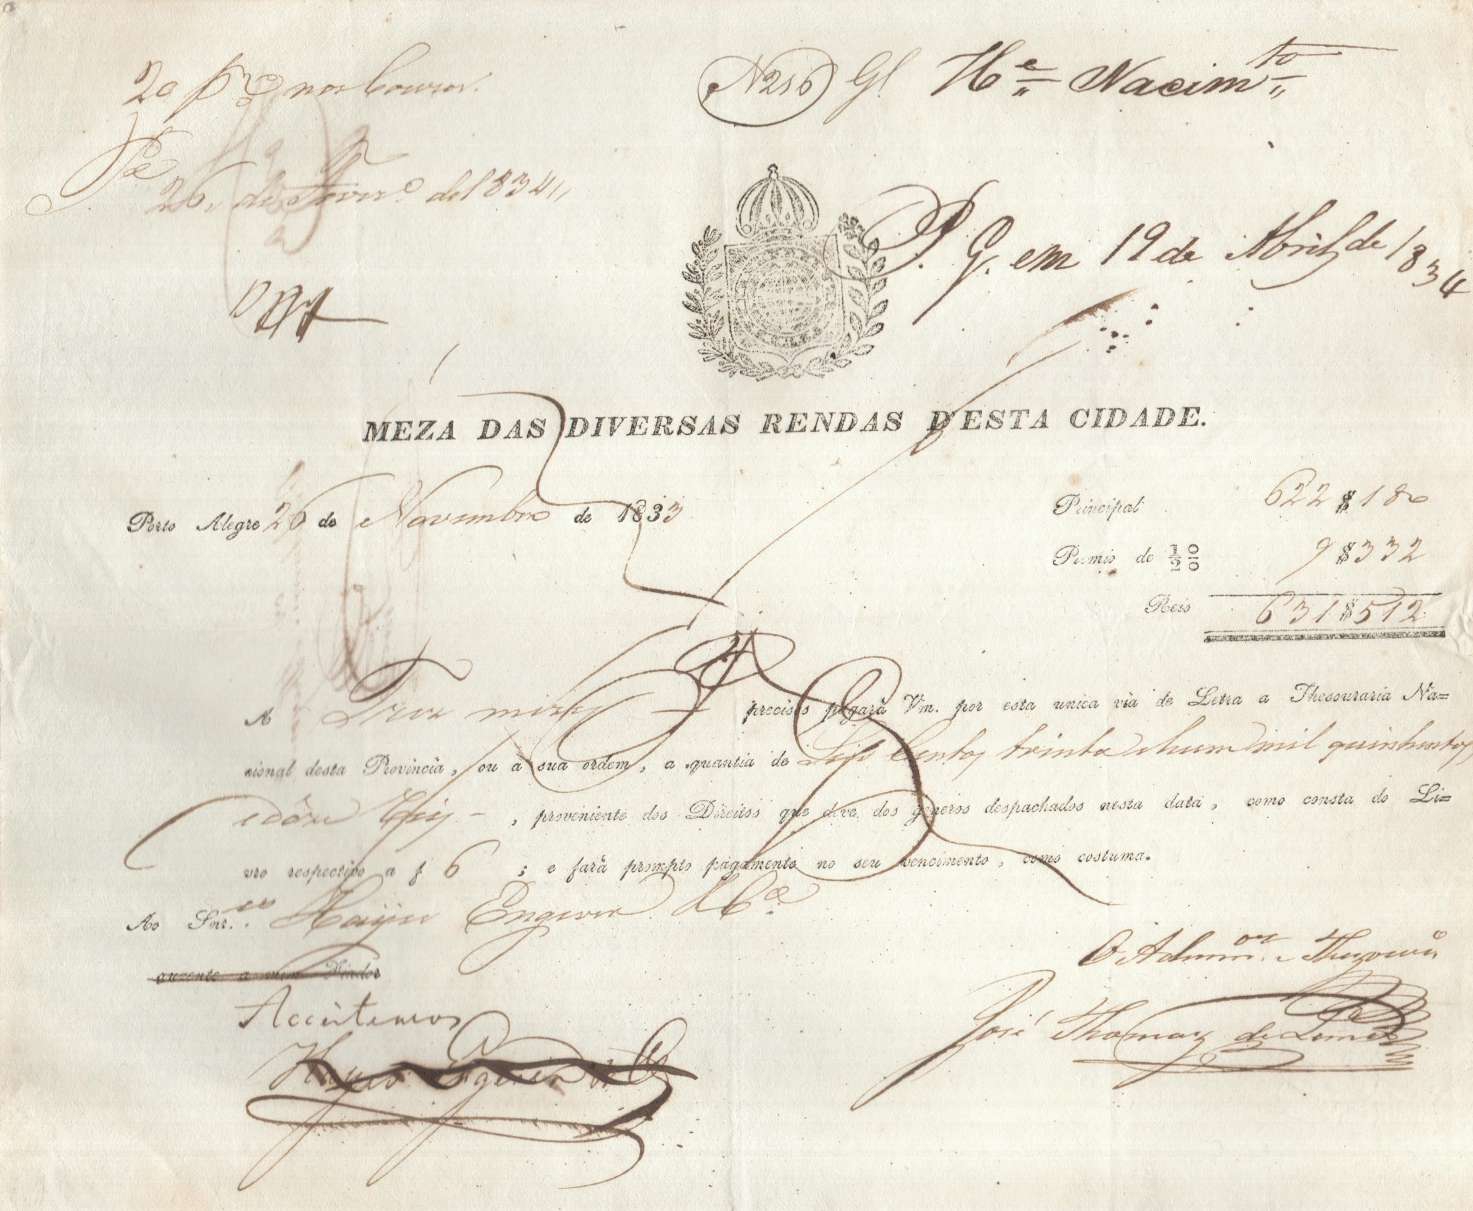 N 216 Gl. H.e Nacim.to
26 de Fever.o de 1834
P. G. em 19 de Abril de 1834
MEZA DAS DIVERSAS RENDAS D'ESTA CIDADE.
Porto Alegre 26 de Novembro de 1833
Principal 622$180
Premio de 1/2 0/0 9$332
Reis 631$512
A Trez mezes precisos pagará Vm. por esta unica via de Letra a Thesouraria Na=
cional desta Provincia, ou á sua ordem, a quantia de Seis Centos trinta e hum mil quinhentos
e dôze Reis, proveniente dos Direitos que deve dos generos despachados nesta data, como consta do Li=
vro respectivo a f 6; e fará prompto pagamento no seu vencimento, como costuma.
Ao Snr.es Hayes Engerer & C.a
O Adm.or e Thezour.o
Acceitamos
José Thomaz de Lima
Hayes Engerer & Co